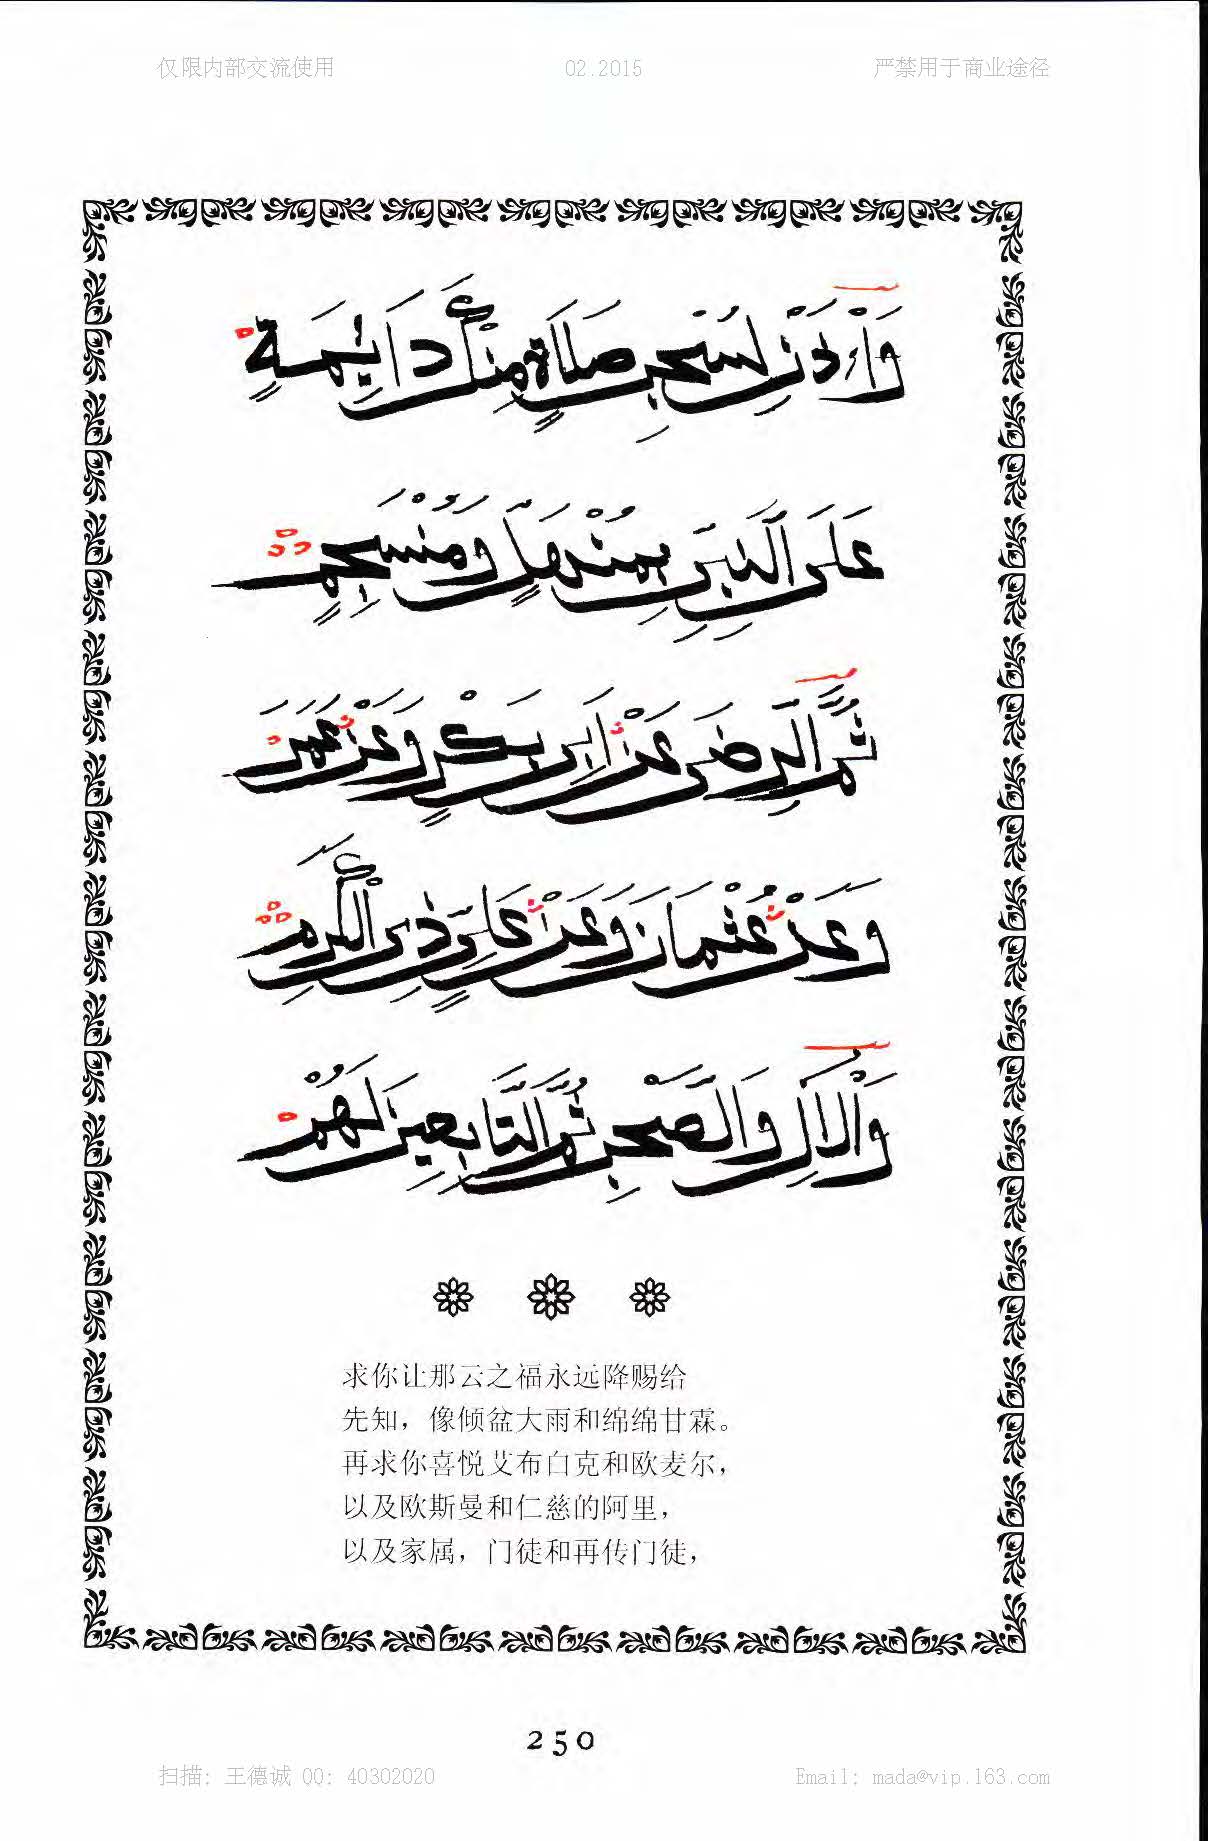 仅限内部交流使用 02.2015 严禁用于商业途径
وَاْءذَنْ لِسُحْبِ صَلَاةٍ مِنْكَ دَائِمَةٍ
عَلَى النَّبِيِّ بِمُنْهَلٍّ وَمُنْسَجِمٍ
ثُمَّ الرِّضَى عَنْ أَبِي بَكْرٍ وَعَنْ عُمَرَ
وَعَنْ عُثْمَانَ وَعَنْ عَلِيٍّ ذِي الْكَرَمِ
وَالْآلِ وَالصَّحْبِ ثُمَّ التَّابِعِينَ لَهُمْ
求你让那云之福永远降赐给
先知，像倾盆大雨和绵绵甘霖。
再求你喜悦艾布白克和欧麦尔，
以及欧斯曼和仁慈的阿里，
以及家属，门徒和再传门徒，
250
扫描: 王德诚 QQ: 40302020 Email: mada@vip.163.com